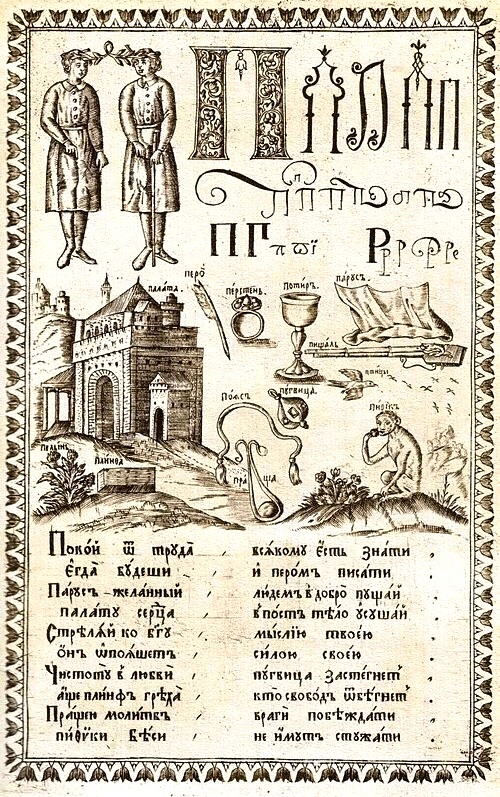 П
п
ПГ п ѿї Р р р р ре
перо̀
палата.
перстень.
Потиръ.
парусъ.
пищаль
птици
Поѧсъ
пугвица.
Пиѳікъ
пра ща
Покой ѿ труда , всѧкому є́сть зна́ти ,
Е́гда̀ бу́деши , и҆ перо́мъ писа́ти ,
Па́русъ желанный , лю́демъ в̾добро̀ пуща́й
пала́ту се́рдца , в̾по́стъ тѣ́ло ѹ҆суша́й
Стрѣлѧ́й ко бг҃у , мы́слїю твое́ю
ѻ҆́нъ ѡ҆поѧ́шетъ , си́лою свое́ю
Чистоту̀ в̾ любви̂ , пу́гвица застегне́т
а҆́ще пли́нѳъ грѣха̀ , кто̀ свобо́дъ ѿбѣ́гнет
Пра́щею моли́твъ , враги̂ побѣжда́ти
пи́ѳики бѣ́си , не и҆́мутъ стужа́ти